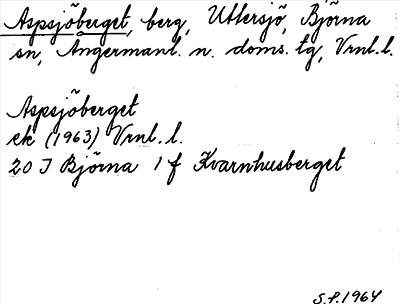 Aspsjöberget, berg, Uttersjö, Björna
sn, Ångermanl. n. doms. tg, Vrnl. l.
Aspsjöberget
ek (1963) Vrnl. l.
20 I Björna 1 f Kvarnhusberget
S.f. 1964